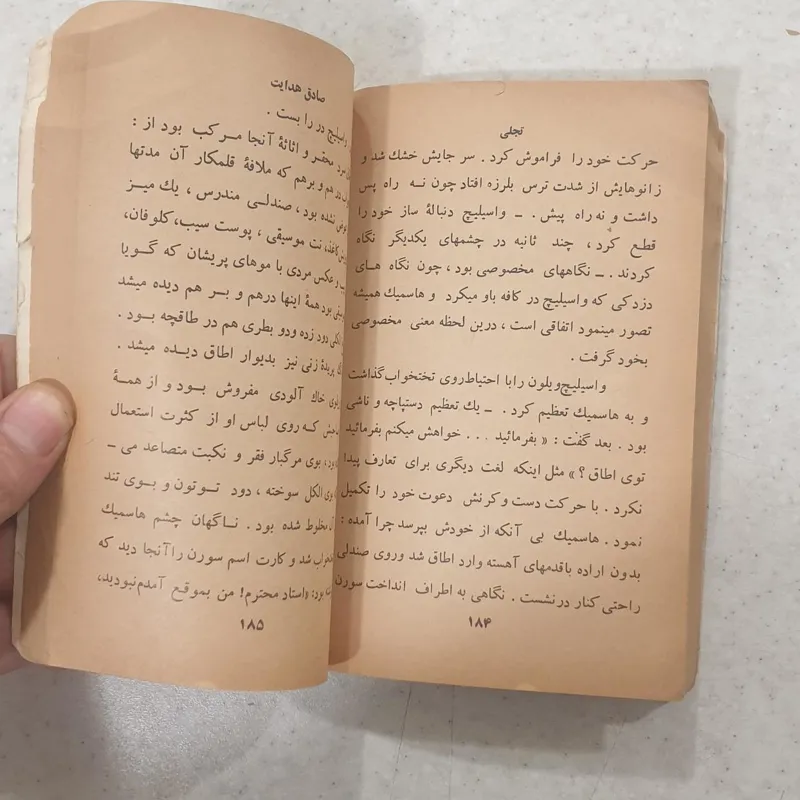 تجلی
حرکت خود را فراموش کرد . سر جایش خشك شد و
زانوهایش از شدت ترس بلرزه افتاد چون نه راه پس
داشت و نه راه پیش . ــ واسیلیچ دنبالهٔ ساز خود را
قطع کرد ، چند ثانیه در چشمهای یکدیگر نگاه
کردند . ــ نگاههای مخصوصی بود ، چون نگاه های
دزدکی که واسیلیچ در کافه باو میکرد و هاسمیك همیشه
تصور مینمود اتفاقی است ، درین لحظه معنی مخصوصی
بخود گرفت .
واسیلیچ ویلون را با احتیاط روی تختخواب گذاشت
و به هاسمیك تعظیم کرد . ــ یك تعظیم دستپاچه و ناشی
بود . بعد گفت : « بفرمائید ... خواهش میکنم بفرمائید
توی اطاق ؟ » مثل اینکه لغت دیگری برای تعارف پیدا
نکرد . با حرکت دست و کرنش دعوت خود را تکمیل
نمود . هاسمیك بی آنکه از خودش بپرسد چرا آمده :
بدون اراده باقدمهای آهسته وارد اطاق شد و روی صندلی
راحتی کنار در نشست . نگاهی به اطراف انداخت سورن
۱۸۴
صادق هدایت
واسیلیچ در را بست .
سرد محقر و اثاثهٔ آنجا مرکب بود از :
درهم و برهم که ملافهٔ قلمکار آن مدتها
نشده بود ، صندلی مندرس ، یك میز
کاغذ، نت موسیقی ، پوست سیب، کلوفان،
و عکس مردی با موهای پریشان که گویا
بود همهٔ اینها درهم و بر هم دیده میشد
دود زده ودو بطری هم در طاقچه بود .
بریدهٔ زنی نیز بدیوار اطاق دیده میشد .
خاك آلودی مفروش بود و از همهٔ
که روی لباس او از کثرت استعمال
بود ، بوی مرگبار فقر و نکبت متصاعد می ــ
بوی الکل سوخته ، دود توتون و بوی تند
مخلوط شده بود . ناگهان چشم هاسمیك
شد و کارت اسم سورن را آنجا دید که
بود: «استاد محترم! من بموقع آمدم نبودید،
۱۸۵